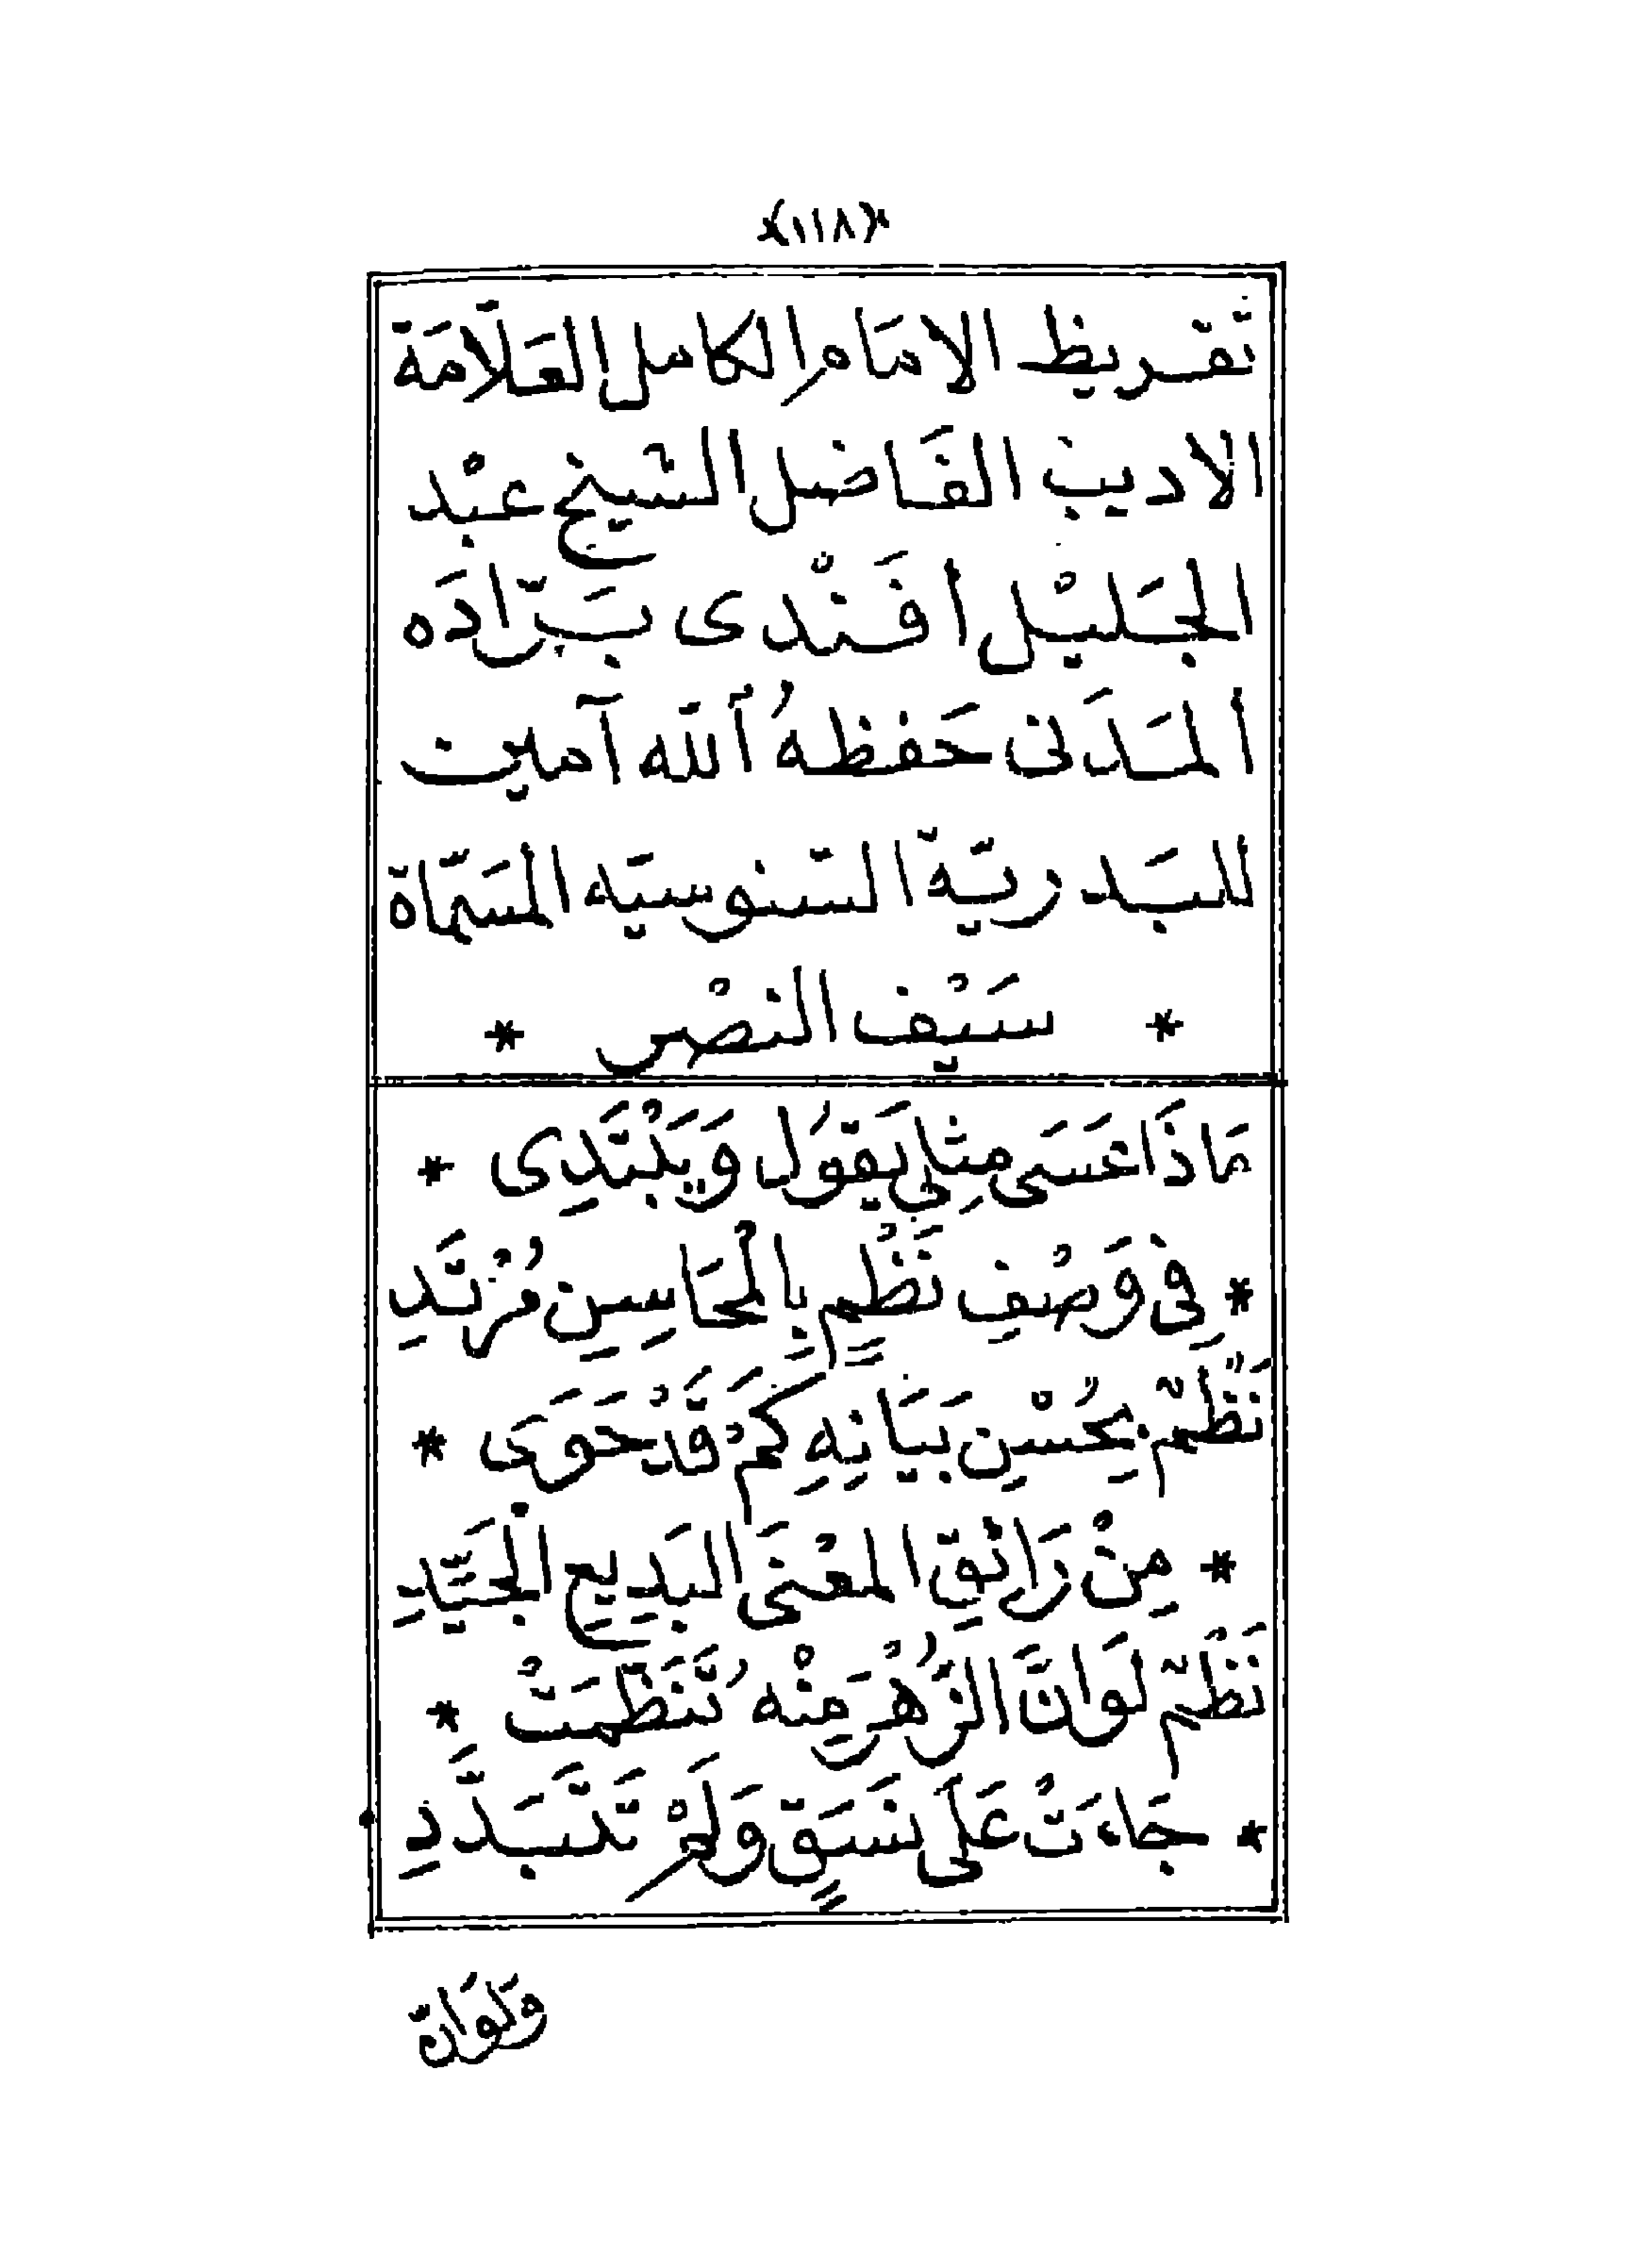 ﴿١١٨﴾
تَقريظ الامَام الكامل العَلَّامَة
الاديب الفَاضل الشيخ عبْد
الجَليْل افَنْدى بَرَّادَه
ألمَدَنى حَفظهُ ألله آمين
للبَدريَّة السَّنوسيَّه المسَمَّاة
* سَيْف النصْر *
مَاذَا عَسَى مِثِلى يَقوُل وَيَبْتَدِى *
* فِى وَصْفِ نَظْمٍ بِالْمَحَاسِنِ مُرْتَدِ
نَظْمٌ بِحُسْنِ بَيَانِهِ كَمْ قَدْ حَوَى *
* مِنْ رَائقِ المعْنَى البَدِيعِ الْجَيِّدِ
نَظْمٌ لَوَانَّ الزُّهْرَ مِنْه تَنَظَّمَتْ *
* جَاءَتْ عَلَى نَسَقٍ وَلَمْ تَتَبَدَّدِ
وَلَوَانّ